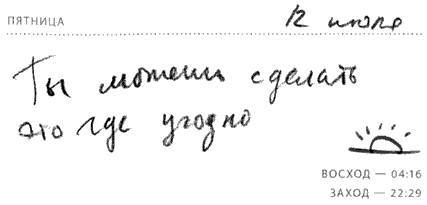 ПЯТНИЦА 12 июля
Ты можешь сделать
это где угодно
ВОСХОД — 04:16
ЗАХОД — 22:29